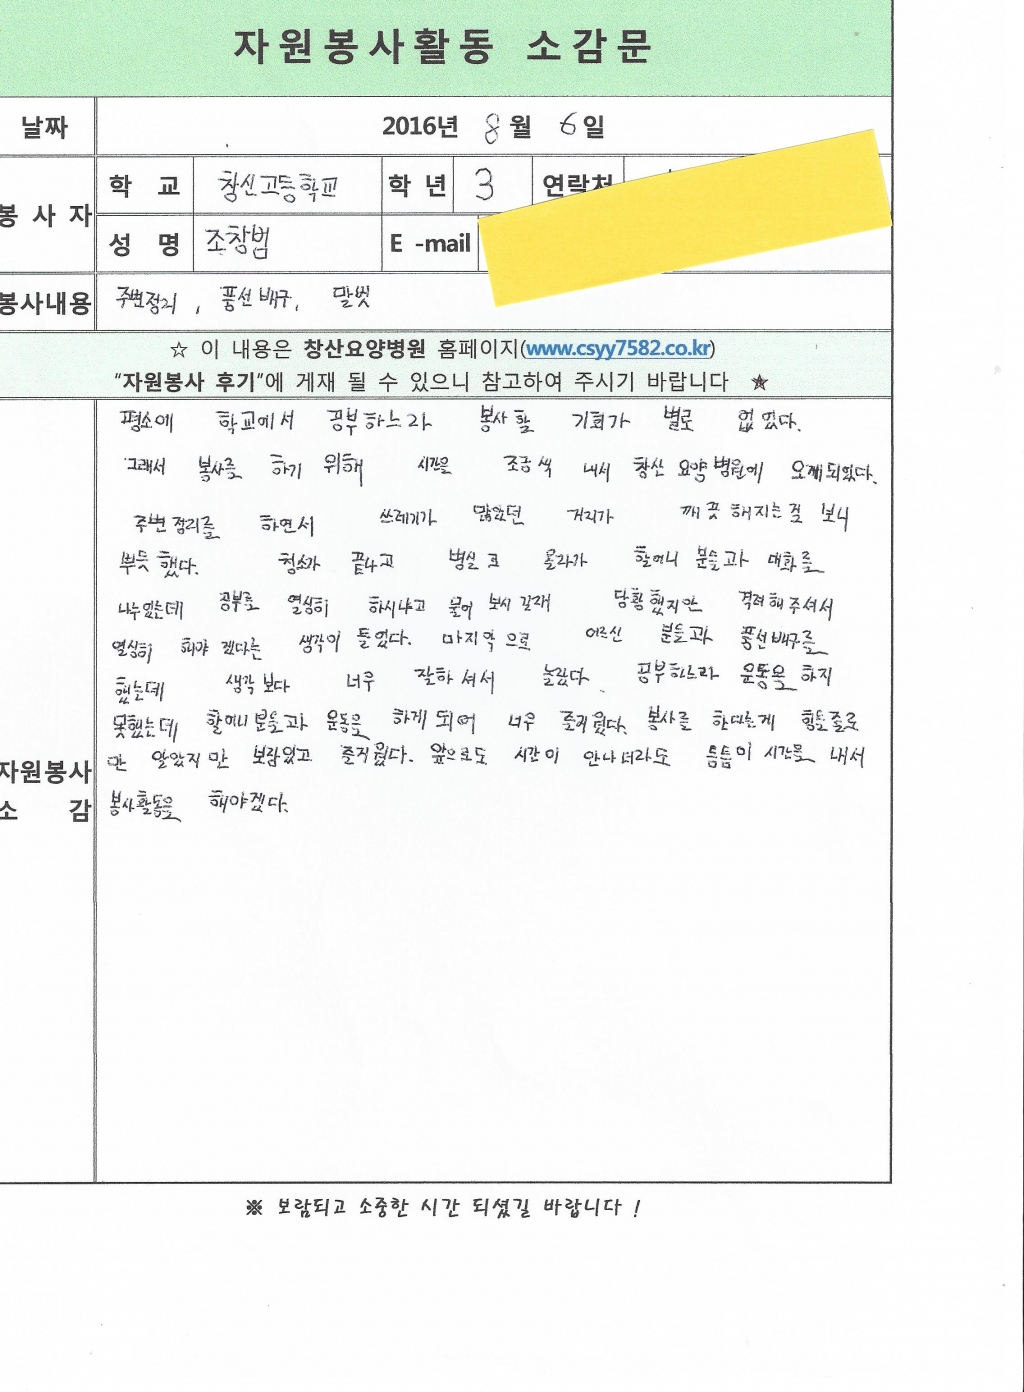 자원봉사활동 소감문
날짜 2016년 8월 6일
봉사자 학 교 창신고등학교 학 년 3 연락처
성 명 조창범 E -mail
봉사내용 주변정리, 풍선배구, 말벗
☆ 이 내용은 창산요양병원 홈페이지(www.csyy7582.co.kr)
"자원봉사 후기"에 게재 될 수 있으니 참고하여 주시기 바랍니다 ★
평소에 학교에서 공부하느라 봉사할 기회가 별로 없었다.
그래서 봉사를 하기 위해 시간을 조금씩 내서 창산 요양병원에 오게되었다.
주변정리를 하면서 쓰레기가 많았던 거리가 깨끗해지는걸 보니
뿌듯했다. 청소가 끝나고 병실로 올라가 할머니 분들과 대화를
나누었는데 공부를 열심히 하시냐고 물어 보시길래 당황했지만 격려해주셔서
열심히 해야 겠다는 생각이 들었다. 마지막으로 어르신 분들과 풍선배구를
했는데 생각보다 너무 잘하셔서 놀랐다. 공부하느라 운동을 하지
못했는데 할머니분들과 운동을 하게 되어 너무 즐거웠다. 봉사를 한다는게 힘든줄로
만 알았지만 보람있고 즐거웠다. 앞으로도 시간이 안나더라도 틈틈이 시간을 내서
자원봉사
소 감
봉사활동을 해야겠다.
※ 보람되고 소중한 시간 되셨길 바랍니다 !